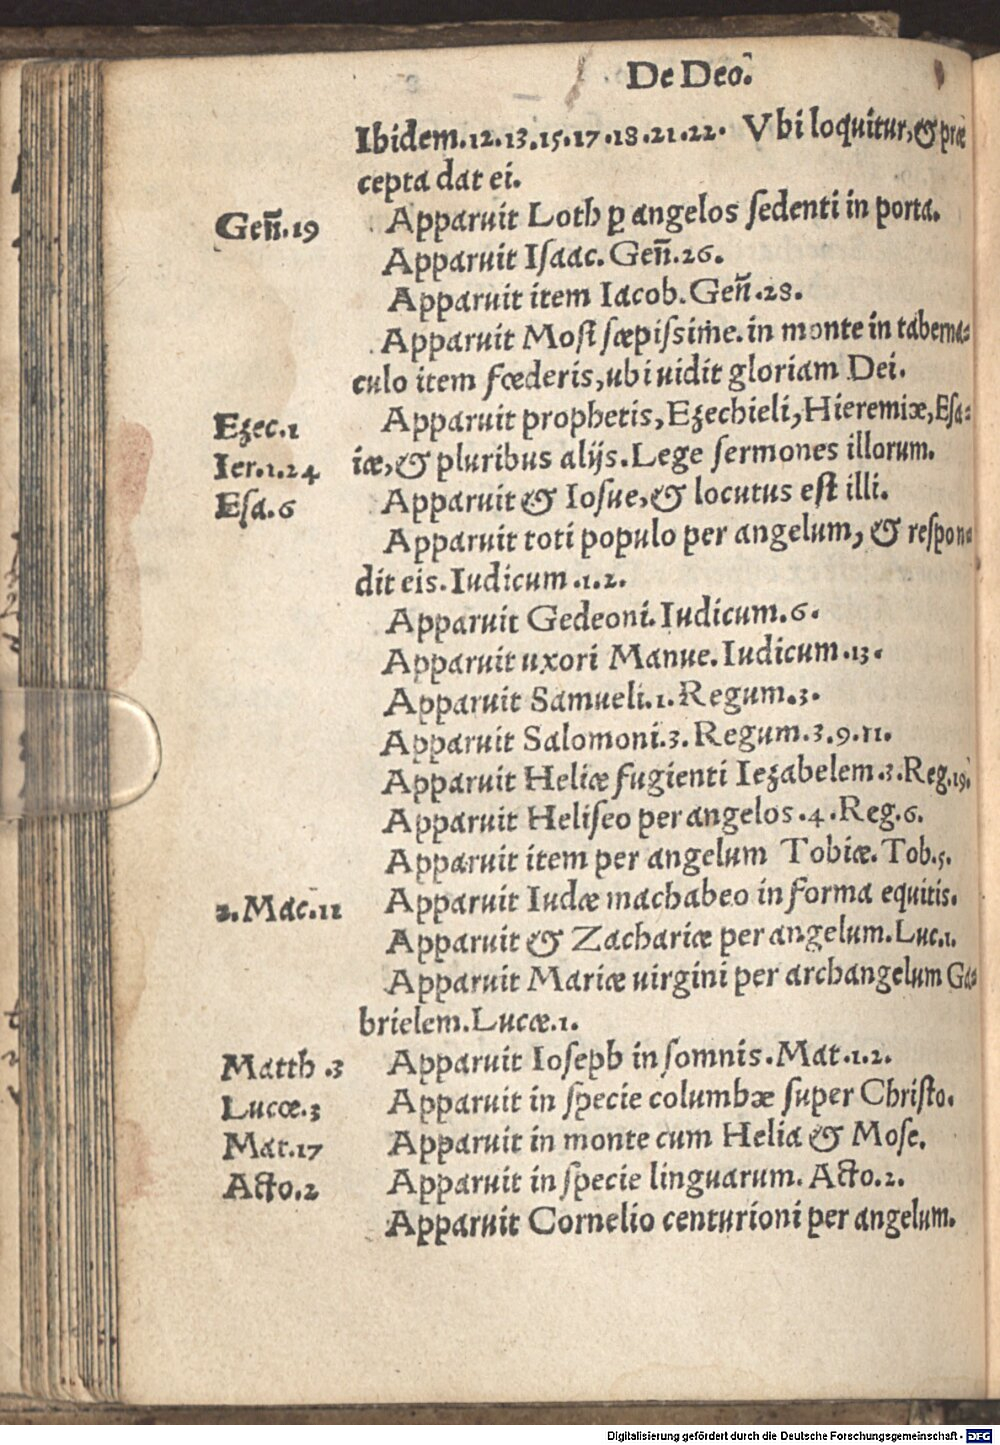 De Deo.
Ibidem.12.13.15.17.18.21.22. Vbi loquitur,& præ
cepta dat ei.
Genῆ.19
Apparuit Loth ꝑ angelos ſedenti in porta.
Apparuit Iſaac. Gen̄.26.
Apparuit item Iacob. Gen̄.28.
Apparuit Moſi ſæpiſsime.in monte in taberna=
culo item fœderis,ubi uidit gloriam Dei.
Ezec.1
Apparuit prophetis, Ezechieli, Hieremiæ, Eſa=
Ier.1.24
iæ,& pluribus alijs. Lege ſermones illorum.
Eſa.6
Apparuit & Ioſue,& locutus eſt illi.
Apparuit toti populo per angelum, & reſpon=
dit eis. Iudicum .1.2.
Apparuit Gedeoni. Iudicum.6.
Apparuit uxori Manue. Iudicum.13.
Apparuit Samueli.1. Regum.3.
Apparuit Salomoni.3. Regum.3.9.11.
Apparuit Heliæ fugienti Iezabelem.3.Reg.19.
Apparuit Heliſeo per angelos.4.Reg.6.
Apparuit item per angelum Tobiæ. Tob.5.
2.Mac.11
Apparuit Iudæ machabeo in forma equitis.
Apparuit & Zachariæ per angelum. Luc.1.
Apparuit Mariæ uirgini per archangelum Ga=
brielem. Lucæ.1.
Matth.3
Apparuit Ioſeph in ſomnis. Mat.1.2.
Lucæ.3
Apparuit in ſpecie columbæ ſuper Chriſto.
Mat.17
Apparuit in monte cum Helia & Moſe.
Acto.2
Apparuit in ſpecie linguarum. Acto.2.
Apparuit Cornelio centurioni per angelum.
Digitalisierung gefördert durch die Deutsche Forschungsgemeinschaft - DFG